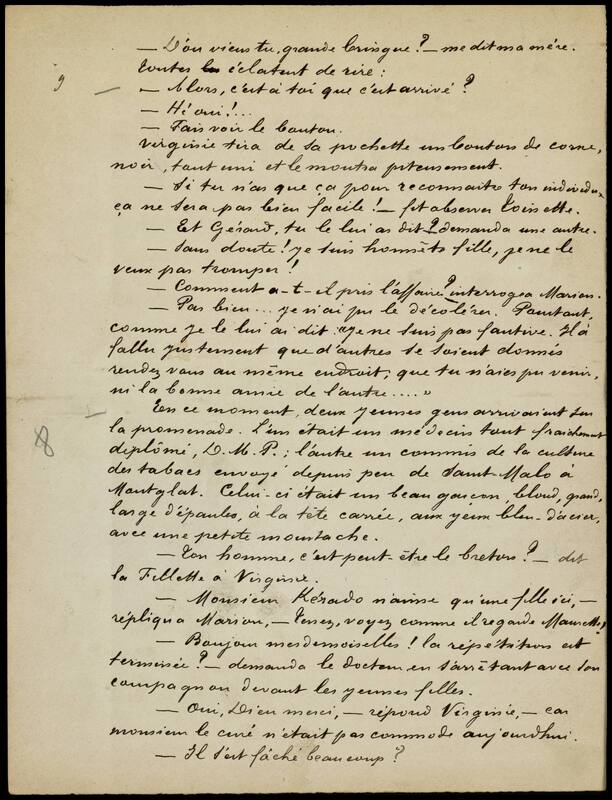 — D'ou viens tu, grande bringue? — me dit ma mére.
Toutes éclatent de rire:
9
— Alors, c'est à toi que c'est arrivé?
— Hé oui!...
— Fais voir le bouton.
Virginie tira de sa pochette un bouton de corne,
noir, tout uni et le montra piteusement.
— Si tu n'as que ça pour reconnaitre ton individu,
ça ne sera pas bien facile! — fit observer Toinette.
— Et Gérard, tu le lui as dit? demanda une autre.
— Sans doute! je suis honnête fille, je ne le
veux pas tromper!
— Comment a-t-il pris l'affaire? interrogea Marion.
— Pas bien... je n'ai pu le décolérer. Pourtant,
comme je le lui ai dit "je ne suis pas fautive. Il a
fallu justement que d'autres se soient donnés
rendez vous au même endroit; que tu n'aies pu venir,
ni la bonne amie de l'autre...."
En ce moment, deux jeunes gens arrivaient sur
la promenade. L'un était un médecin tout fraichement
8
diplômé, D.M.P.; l'autre un commis de la culture
des tabacs envoyé depuis peu de Saint-Malo à
Montglat. Celui-ci était un beau garçon, blond, grand,
large d'épaules, à la tête carrée, aux yeux bleu-d'acier,
avec une petite moustache.
— Ton homme, c'est peut-être le breton? — dit
la Fillette à Virginie.
— Monsieur Kérado n'aime qu'une fille ici, —
répliqua Marion, — Tenez, voyez comme il regarde Maurette!
— Bonjour mesdemoiselles! la répétition est
terminée? — demanda le docteur en s'arrêtant avec son
compagnon devant les jeunes filles.
— Oui, Dieu merci, — répond Virginie, — car
monsieur le curé n'était pas commode aujourd'hui.
— Il s'est fâché beaucoup?